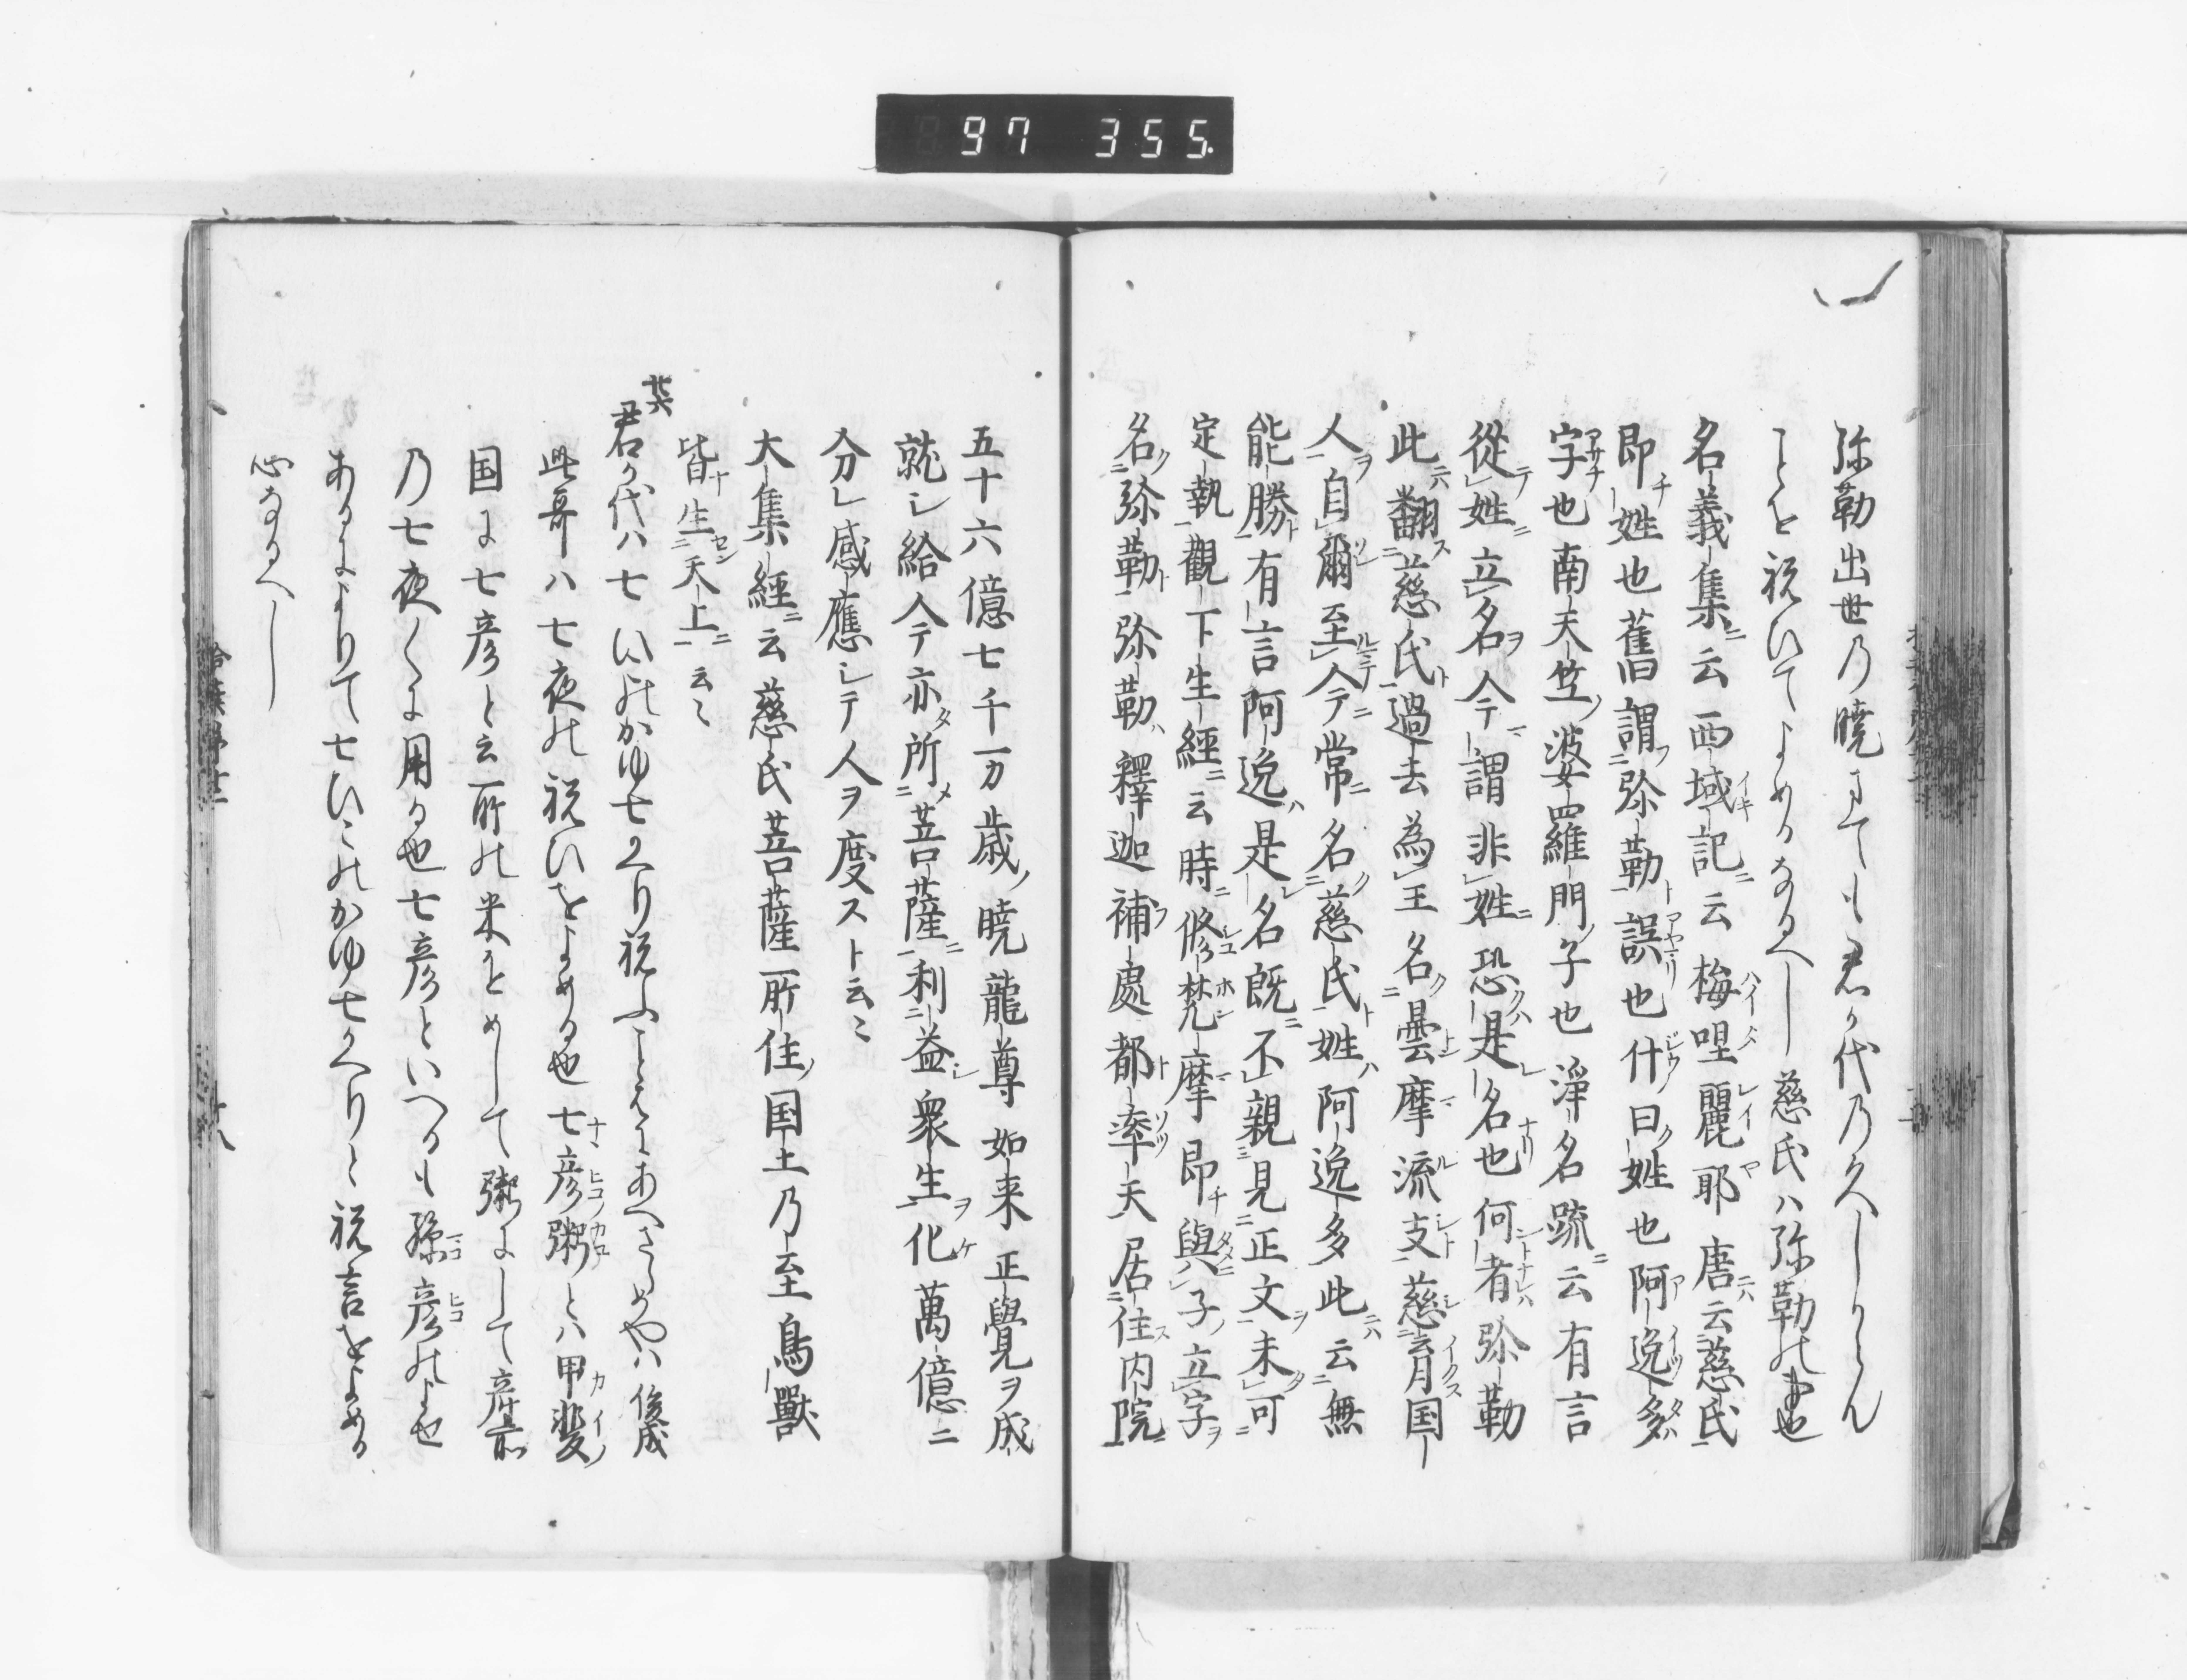 97 355
弥勒出世乃暁まても君か代乃久しからん
ことを祝いてよめるなるへし慈氏ハ弥勒の事也
名義集ニ云西域記ニ云梅呾麗耶唐ニハ云慈氏
即チ姓也舊謂弥勒ト誤也什曰ク姓也阿逸多ハ
字也南天竺ノ波婆羅門ノ子也淨名疏ニ云有言
從テ姓ニ立名ヲ今謂非姓ニ恐クハ是レ名也何者弥勒
此ニハ翻ス慈氏ト過去為王名ク曇摩流支ト慈育国
人ヲ自爾至今ニ常ニ名ク慈氏ト姓ハ阿逸多此ニハ云無
能勝ト有言阿逸ハ是レ名既ニ不親見正文ヲ未タ可
定執觀下生經ニ云時ニ修梵摩即チ與子ノ立字ヲ
名ク弥勒ト弥勒ハ釋迦補處都率天居住ス内院ニ
五十六億七千万歳ノ暁龍尊如来正覺ヲ成
就シ給今亦タ所ニ菩薩ニ利益シ衆生ヲ化ケ萬億ニ
分レ感應シテ人ヲ度スト云々
大集經ニ云慈氏菩薩所住ノ国土乃至鳥獸
皆ナ生セン天上ニ云々
廿六
君か代ハ七いこのかゆ七かへり祝ふことはにあへさらめやハ 俊成
此哥ハ七夜の祝いをよめる也七彦粥とハ甲斐ノ
国に七彦と云所の米をめして粥にして産前
乃七夜〱に用る也七彦といへるも孫彦のよせ
あるによりて七いこのかゆ七かへりと祝言をよめる
心なるへし